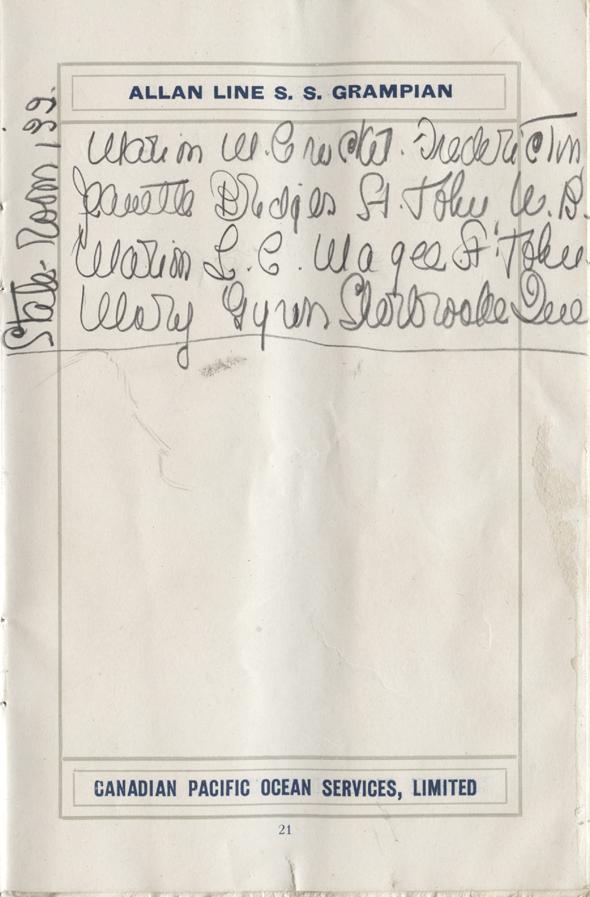 ALLAN LINE S. S. GRAMPIAN
State-Room 132.
Marion W. Crocket. Fredericton
Jeanette Bridges St. John N.B.
Marion L. C. Magee St. John
Mary Gyves Sherbrooke Que
CANADIAN PACIFIC OCEAN SERVICES, LIMITED
21